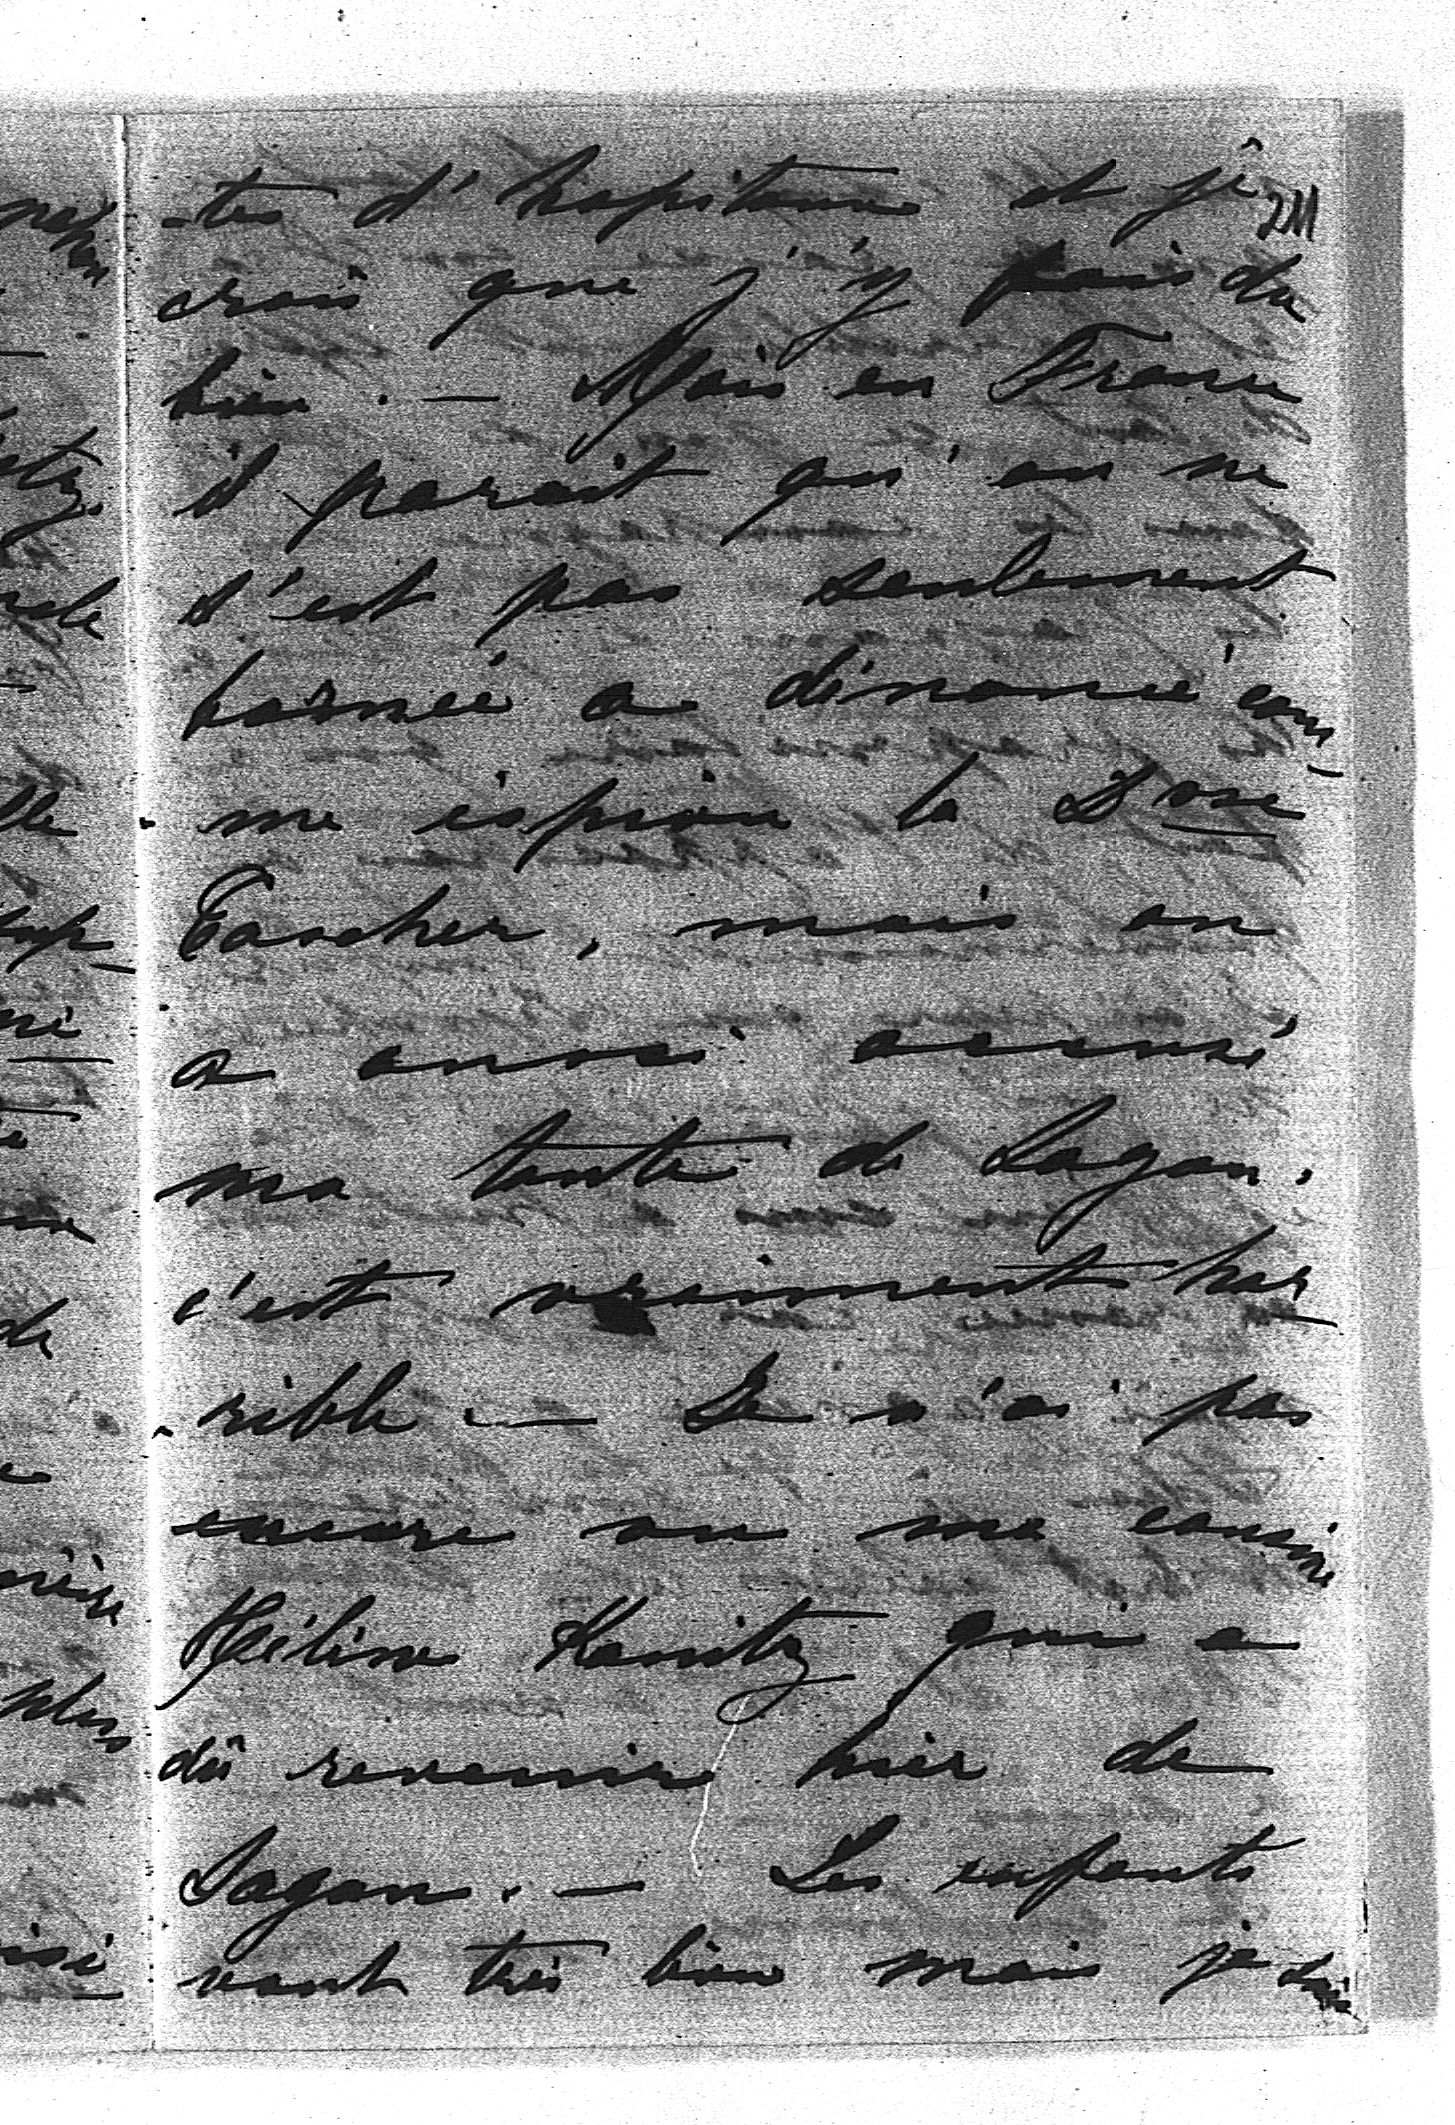 -tes d'hopitaux et je
211
crois que j'y fais du
bien. — Mais en France
il parait qu'on ne
s'est pas seulement
borneé a dénoncé com-
me éspion la D^sse
Tascher, mais on
a aussi accusé
ma tante de Sagan,
c'est vraiment hor-
rible. — Je n'ai pas
encore vu ma cousine
Hélène Kanitz qui a
dû revenir hier de
Sagan. — Les enfants
vont très bien mais je suis